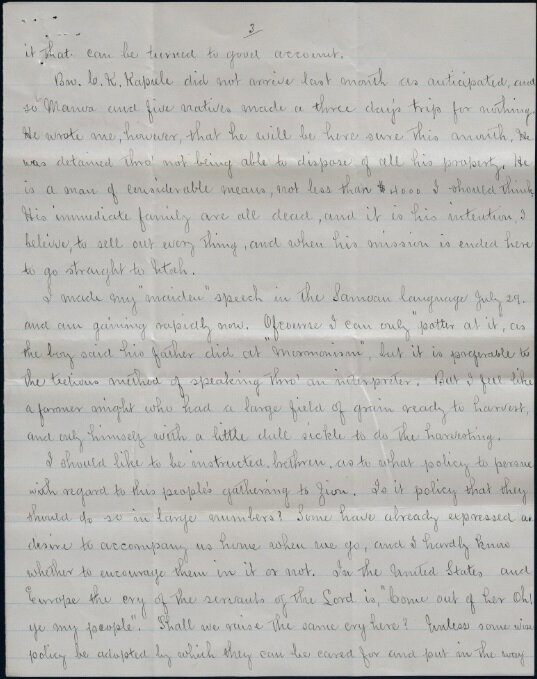 3
it that can be turned to good account.
Bro. C. K. Kapule did not arrive last month as anticipated, and
so Manoa and five natives made a three day's trip for nothing.
He wrote me, however, that he will be here sure this month. He
was detained thro' not being able to dispose of all his property. He
is a man of considerable means, not less than $4000 I should think.
His immediate family are all dead, and it is his intention, I
beleive, to sell out every thing, and when his mission is ended here
to go straight to Utah.
I made my "maiden" speech in the Samoan language July 29.
and am gaining rapidly now. Ofcourse I can only "potter at it, as
the boy said his father did at "Mormonism", but it is preferable to
the tedious method of speaking thro' an interpreter. But I feel like
a farmer might who had a large field of grain ready to harvest,
and only himself with a little dull sickle to do the harvesting.
I should like to be instructed, brethren, as to what policy to persue
with regard to this people's gathering to Zion. Is it policy that they
should do so in large numbers? Some have already expressed a
desire to accompany us home when we go, and I hardly know
whether to encourage them in it or not. In the United States and
Europe the cry of the servants of the Lord is, "Come out of her Oh!
ye my people". Shall we raise the same cry here? Unless some wise
policy be adopted by which they can be cared for and put in the way